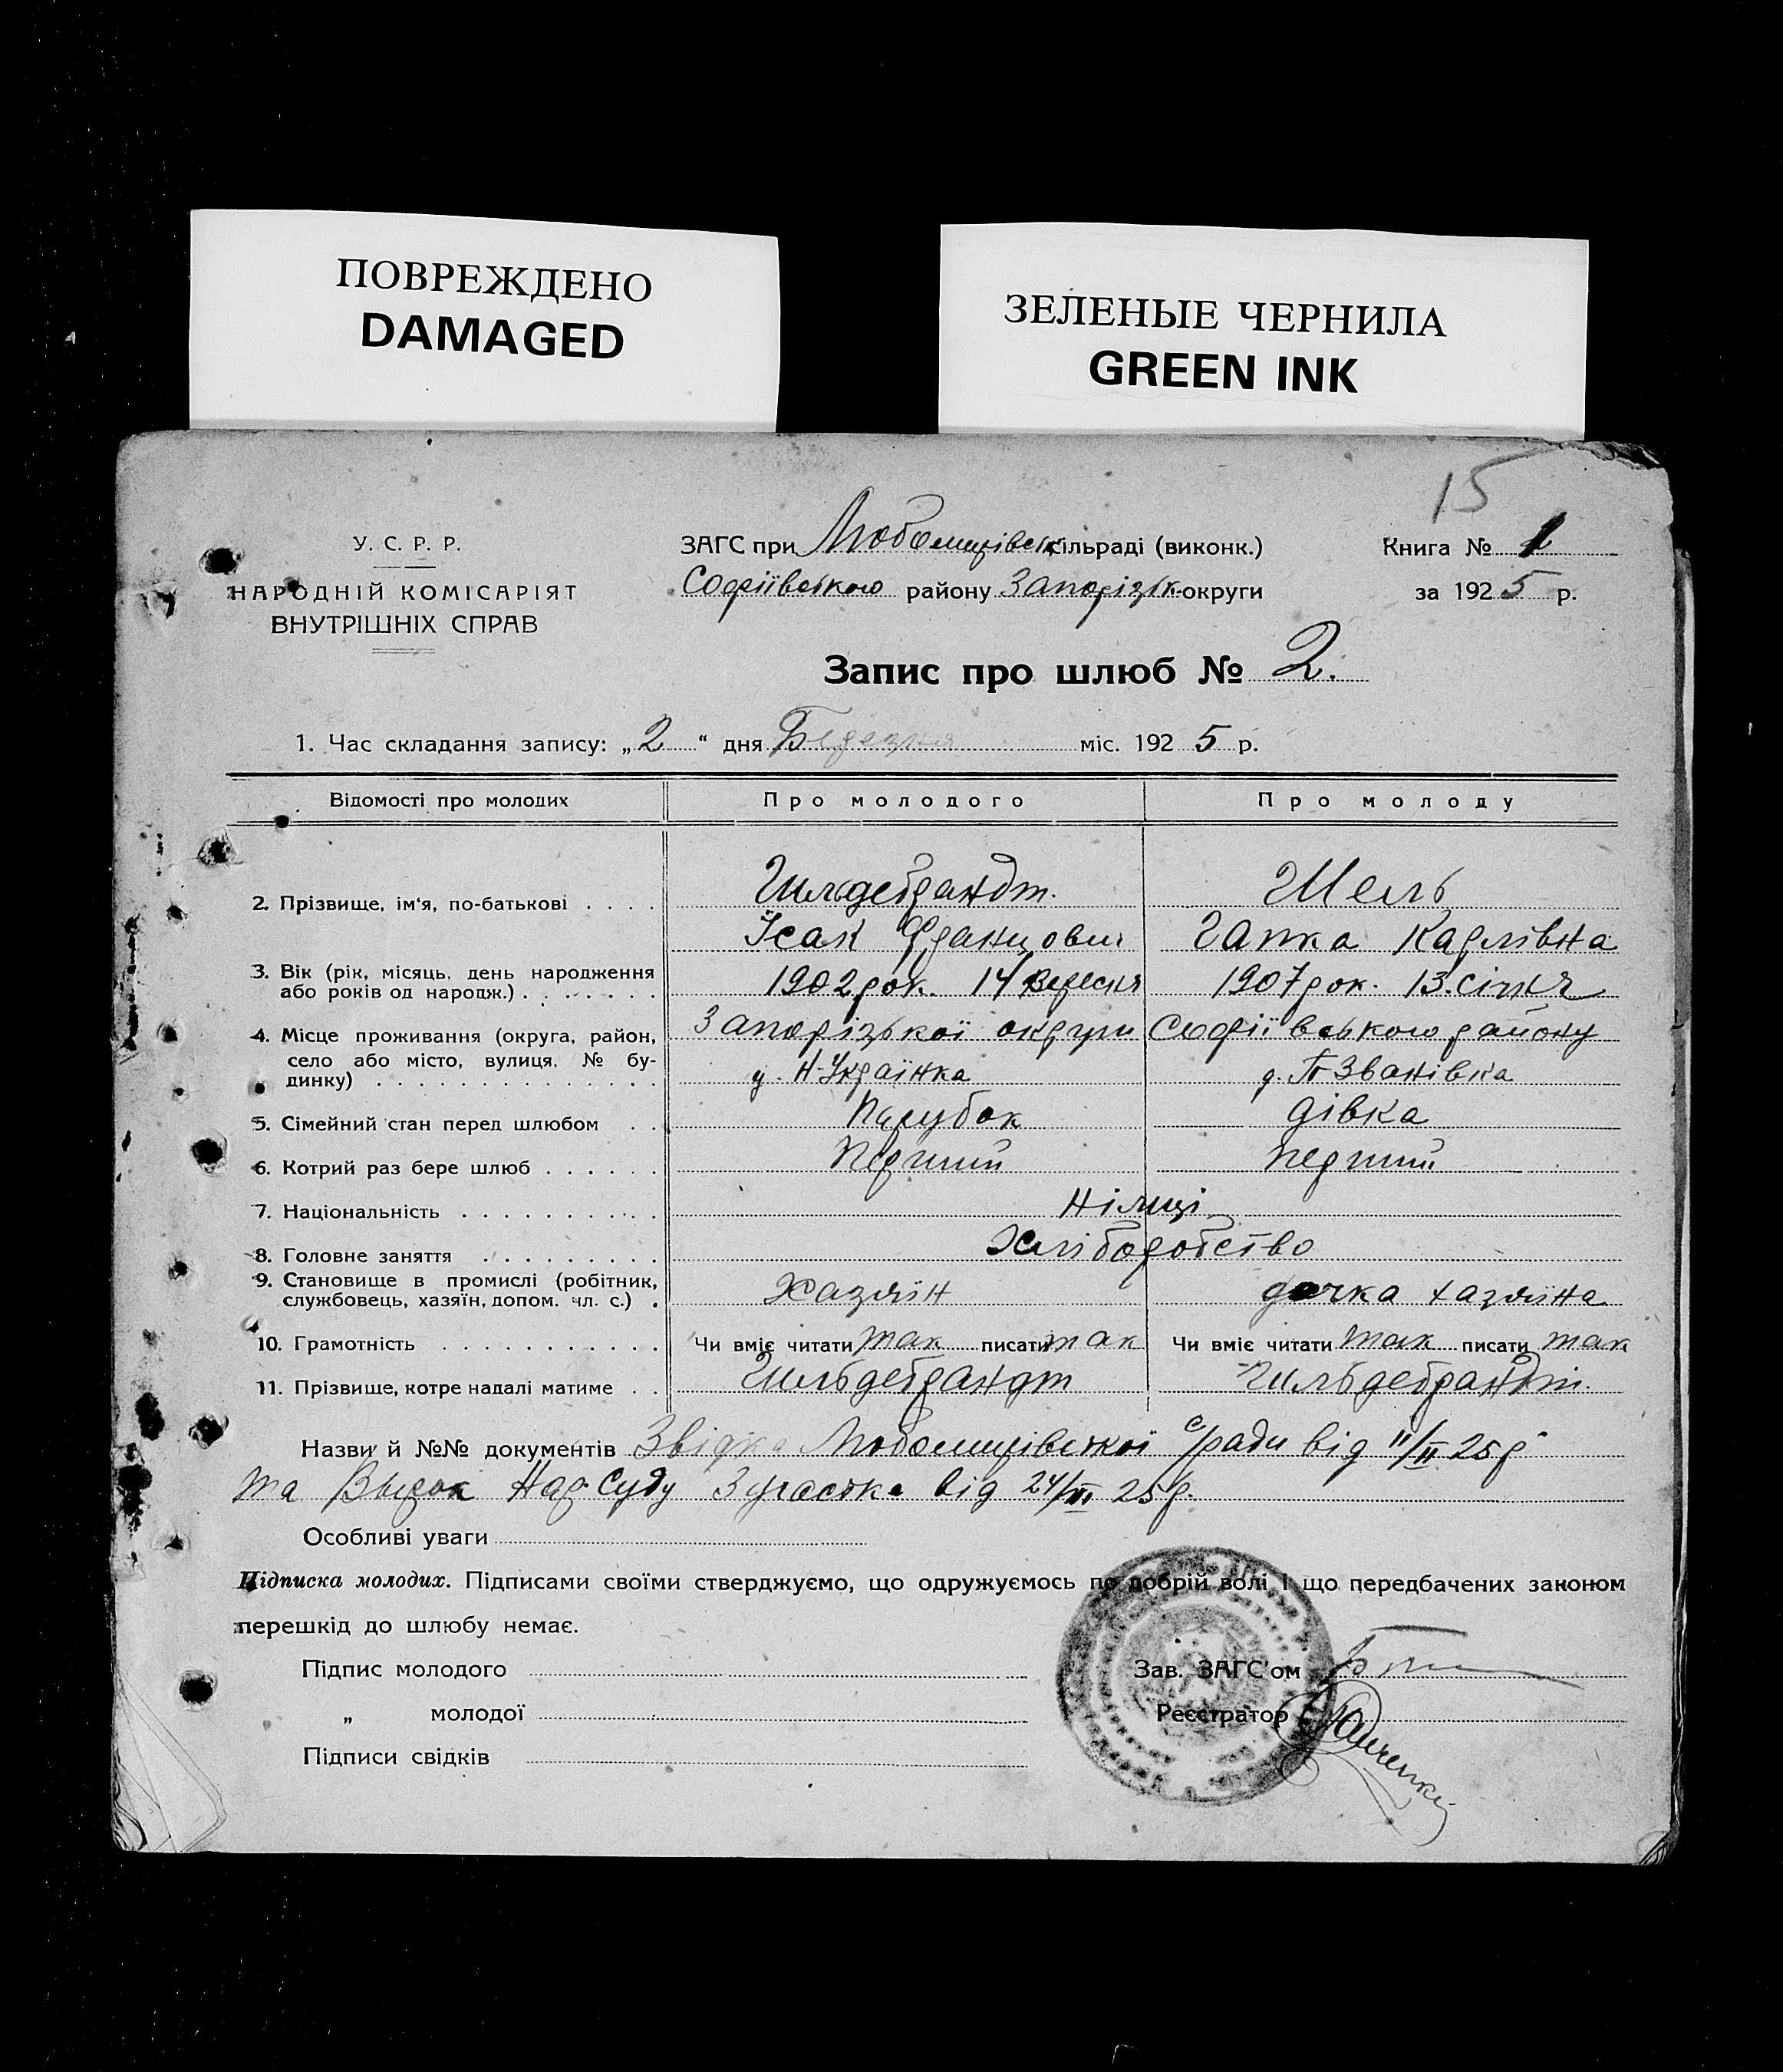 ПОВРЕЖДЕНО
DAMAGED
ЗЕЛЕНЫЕ ЧЕРНИЛА
GREEN INK
15
У. С. Р. Р.
НАРОДНІЙ КОМІСАРІЯТ
ВНУТРІШНІХ СПРАВ
ЗАГС при Любомирівськ сільраді (виконк.)
Софіївського району Запорізьк. округи
Книга № 1
за 1925 р.
Запис про шлюб № 2.
1. Час складання запису: „2“ дня Березня міс. 1925 р.
Відомості про молодих Про молодого Про молоду
2. Прізвище, ім'я, по-батькові . . . . Гильдебрандт. Шель
Ісак Францович Ганка Карлівна
3. Вік (рік, місяць, день народження або років од народж.) . . . . . . . 1902 рок. 14 Вересня 1907 рок. 13. січня
4. Місце проживання (округа, район, село або місто, вулиця, № будинку) . . . . . . . . . . . . . . Запорізької округи Софіївського району
н-Українка Званівка
5. Сімейний стан перед шлюбом . . Парубок дівка
6. Котрий раз бере шлюб . . . . . . Перший Перший
7. Національність . . . . . . . . . . Німці
8. Головне заняття . . . . . . . . . Хліборобство
9. Становище в промислі (робітник, службовець, хазяїн, допом. чл. с.) . Хазяїн дочка хазяїна
10. Грамотність . . . . . . . . . . . Чи вміє читати так писати так Чи вміє читати так писати так
11. Прізвище, котре надалі матиме . . Гильдебрандт Гильдебрандт.
Назви й №№ документів Звідка Любомирівської с/ради від 11/II 25 р
та Нар. Суду 3 участка від 24/III 25 р.
Особливі уваги
Підписка молодих. Підписами своїми стверджуємо, що одружуємось по добрій волі і що передбачених законом
перешкід до шлюбу немає.
Підпис молодого
Зав. ЗАГС'ом
„ молодої
Реєстратор
Підписи свідків